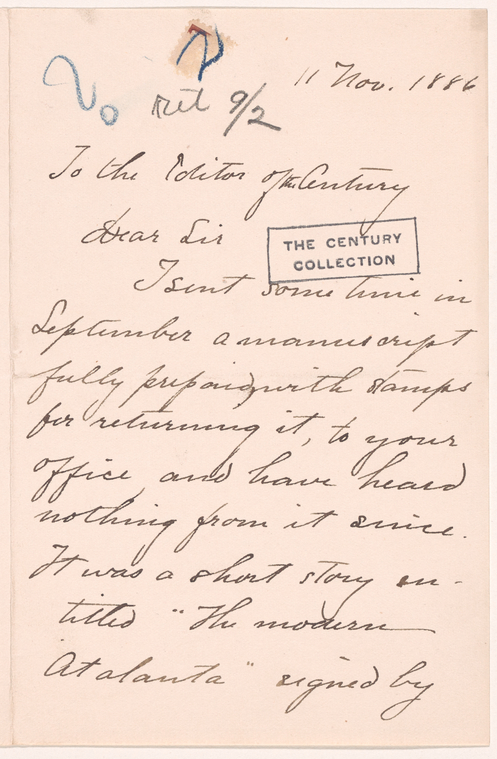 No
ret 9/2
11 Nov. 1886
To the Editor of the Century
Dear Sir
THE CENTURY
COLLECTION
I sent some time in
September a manuscript
fully prepaid, with stamps
for returning it, to your
office and have heard
nothing from it since.
It was a short story en-
titled "The modern
Atalanta" signed by